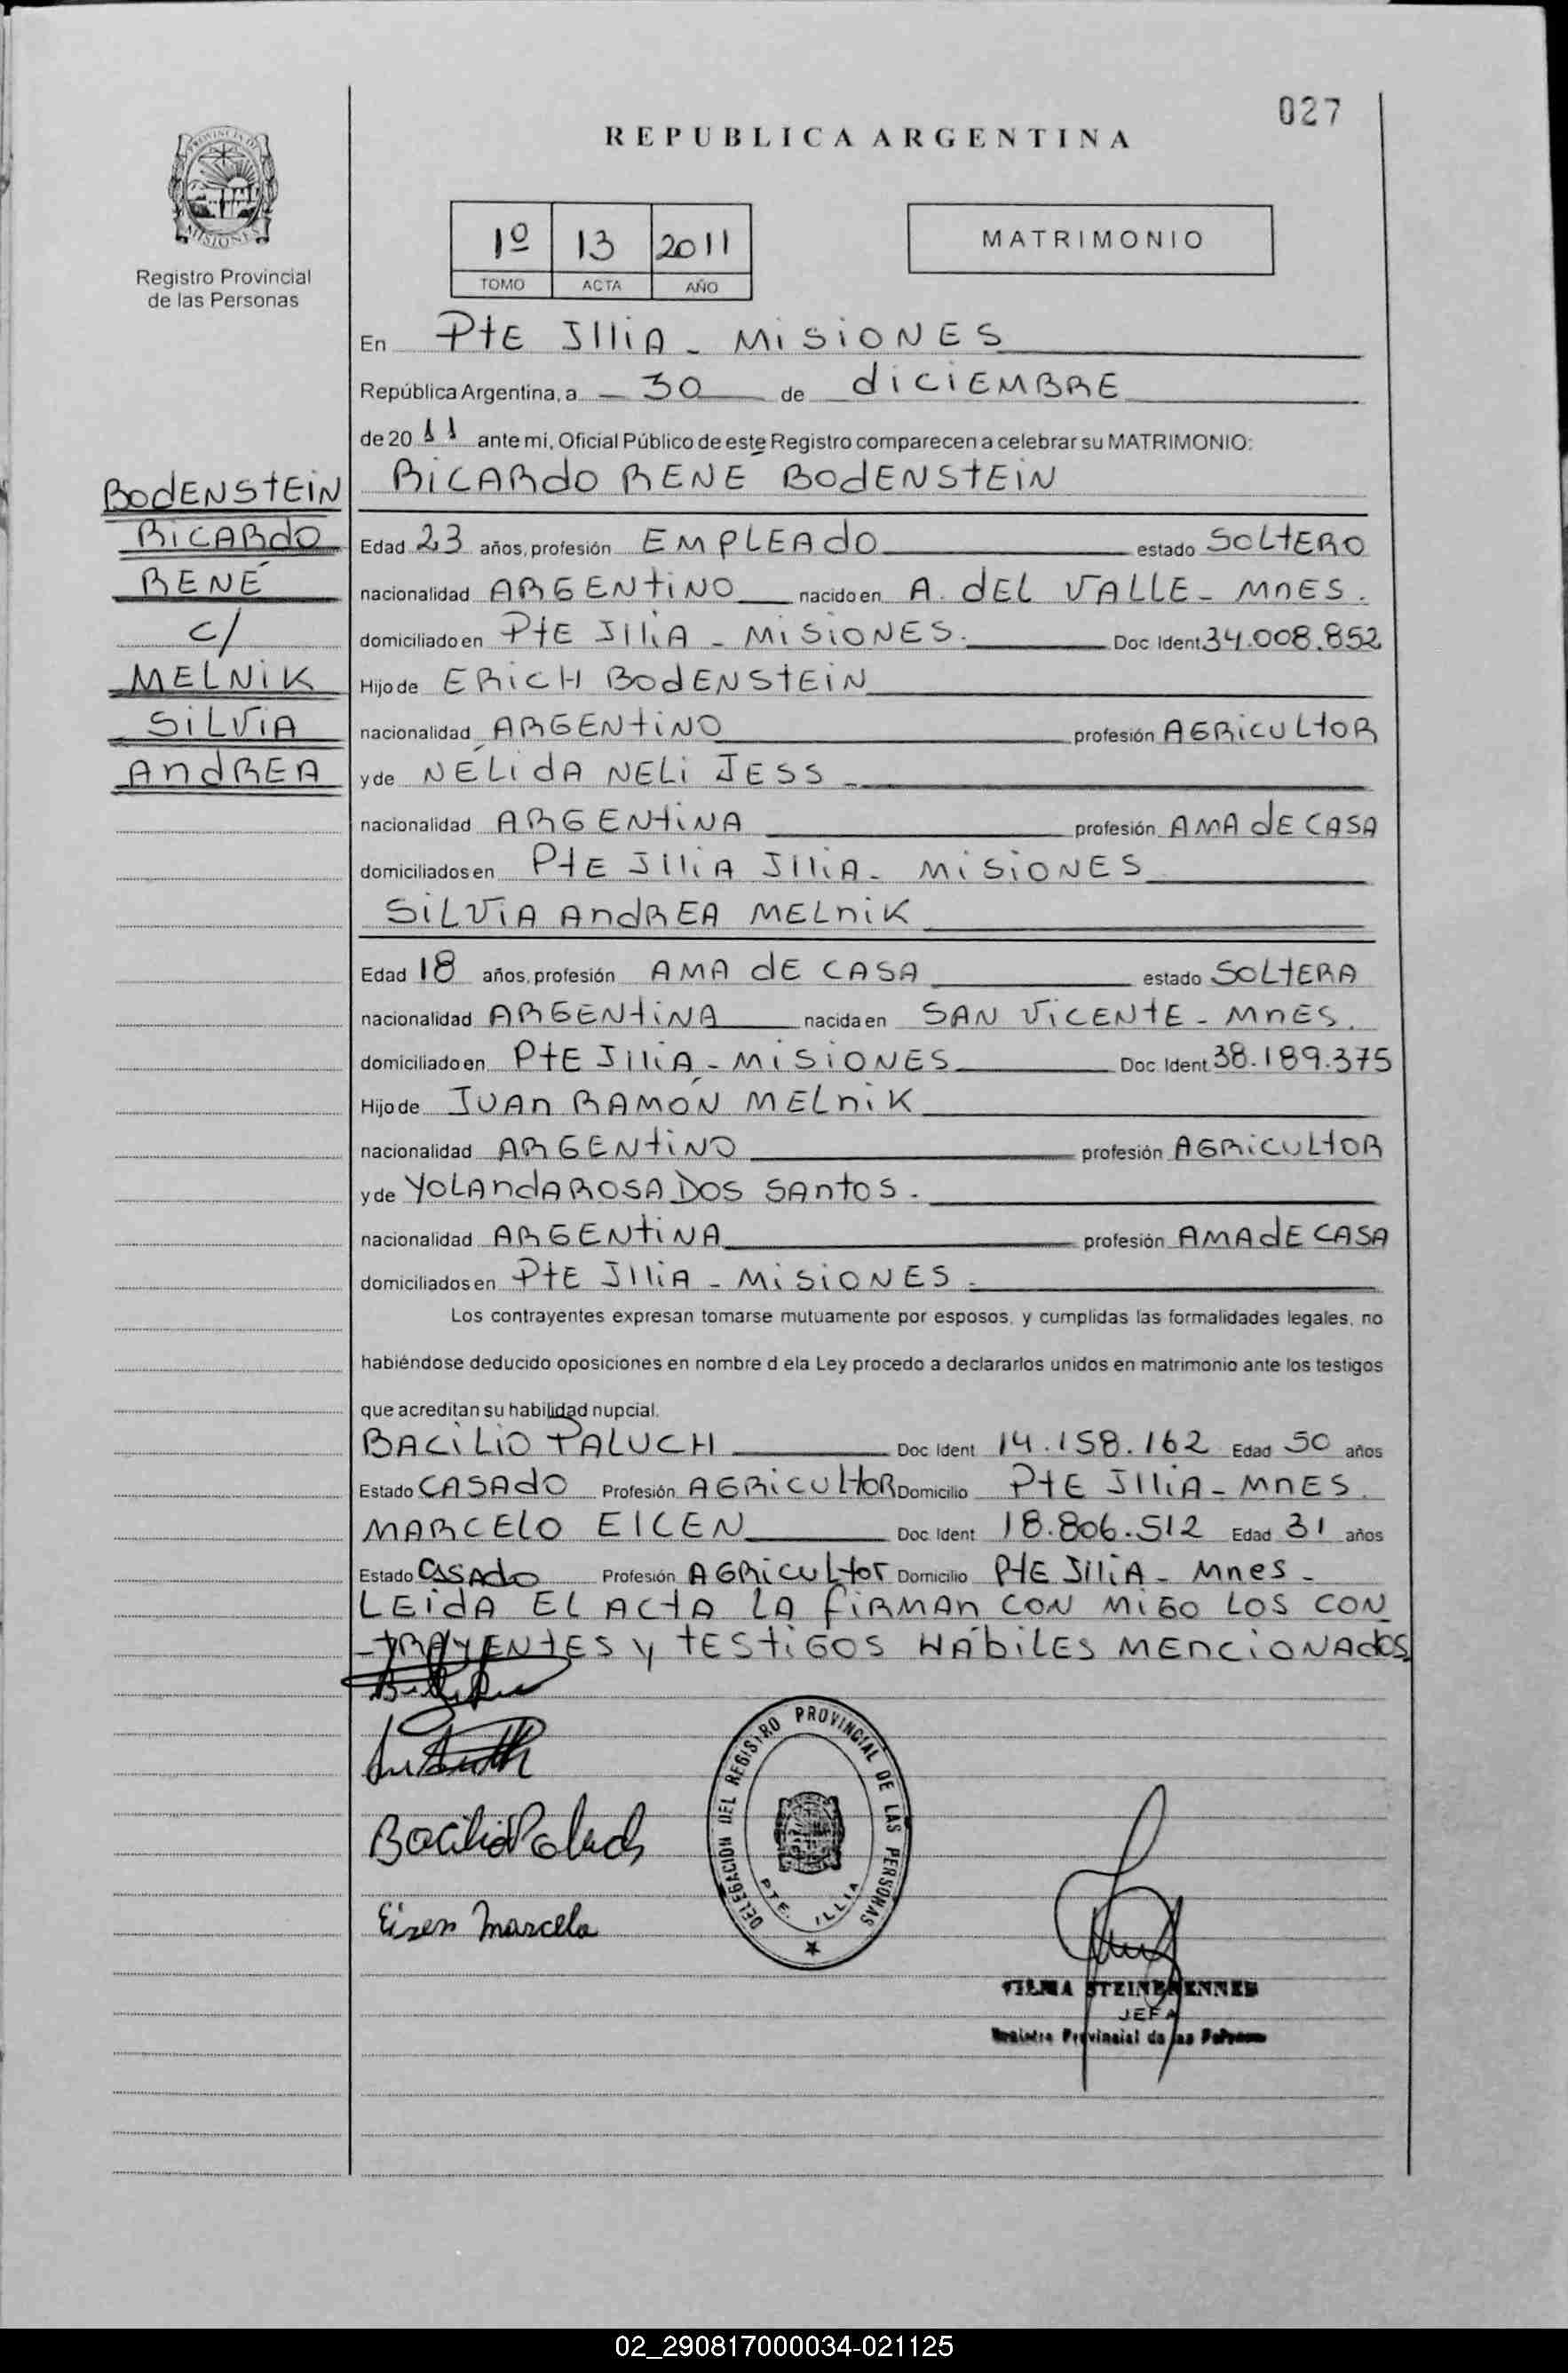 027
REPUBLICA ARGENTINA
PROVINCIA DE MISIONES
Registro Provincial
de las Personas
1º 13 2011
TOMO ACTA AÑO
MATRIMONIO
En PtE IlliA - MiSiONES
República Argentina, a - 30 de diCiEMBRE
de 20 11 ante mi, Oficial Público de este Registro comparecen a celebrar su MATRIMONIO:
BOdENStEiN
RiCARdO
RENÉ
c/
MELNiK
SiLViA
AndREA
RiCARdO RENÉ BOdENStEiN
Edad 23 años, profesión EMPLEAdO estado SOLtERO
nacionalidad ARGENtiNO nacido en A. dEL VALLE - MnES.
domiciliado en PtE IlliA - MiSiONES. Doc Ident 34.008.852
Hijo de ERiCH BOdENStEiN
nacionalidad ARGENtiNO profesión AGRiCULtOR
y de NÉLidA NELi JESS -
nacionalidad ARGENtiNA profesión AMA dE CASA
domiciliados en PtE IlliA IlliA - MiSiONES
SiLViA AndREA MELniK
Edad 18 años, profesión AMA dE CASA estado SOLtERA
nacionalidad ARGENtiNA nacida en SAN ViCENtE - MnES.
domiciliado en PtE IlliA - MiSiONES Doc Ident 38.189.375
Hijo de JUAn RAMÓN MELniK
nacionalidad ARGENtiNO profesión AGRiCULtOR
y de YOLAndA ROSA DOS SAntOS.
nacionalidad ARGENtiNA profesión AMA dE CASA
domiciliados en PtE IlliA - MiSiONES -
Los contrayentes expresan tomarse mutuamente por esposos, y cumplidas las formalidades legales, no
habiéndose deducido oposiciones en nombre d ela Ley procedo a declararlos unidos en matrimonio ante los testigos
que acreditan su habilidad nupcial.
BACiLiO PALUCH Doc Ident 14.158.162 Edad 50 años
Estado CASAdO Profesión AGRiCULtOR Domicilio PtE IlliA - MnES.
MARCELO EICEN Doc Ident 18.806.512 Edad 31 años
Estado CASAdo Profesión AGRiCULtor Domicilio PtE IlliA - Mnes -
LEidA EL ACtA LA fiRMAn CON MiGO LOS CON
-tRAYENtES y tEStiGOS HÁbiLES MEnCiONAdOS
Bacilio Paluch
Eizen Marcelo
DELEGACION DEL REGISTRO PROVINCIAL DE LAS PERSONAS
PTE. ILLIA
JEFA
Registro Provincial de las Personas
02_290817000034-021125